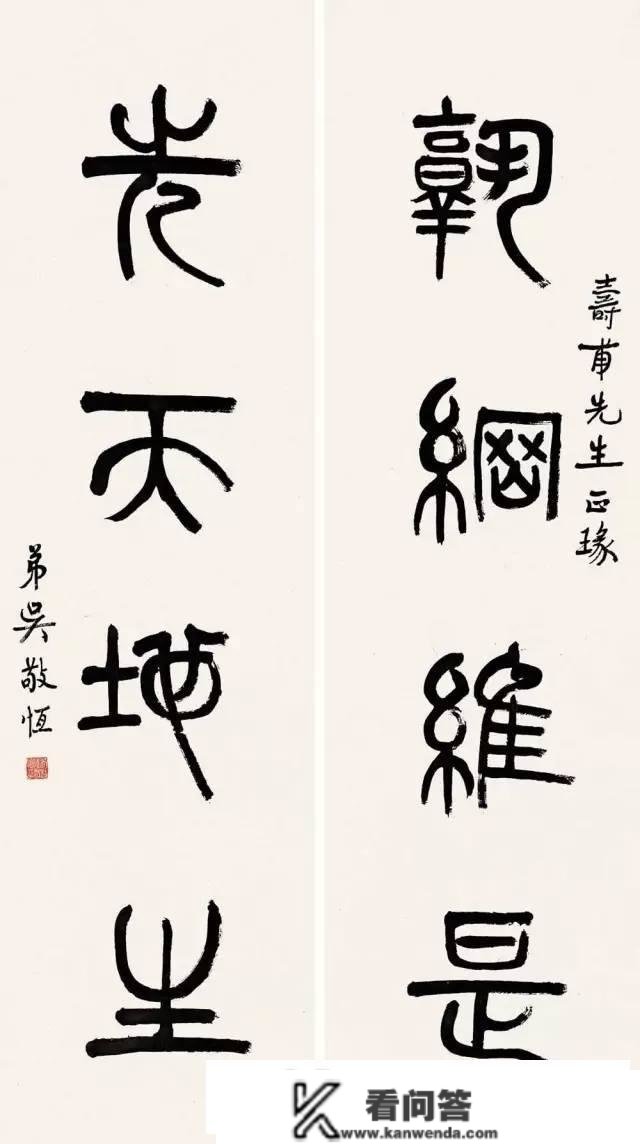 壽甫先生正瑑
孰綱維是
先天地生
弟吳敬恆
看问答
www.kanwenda.com